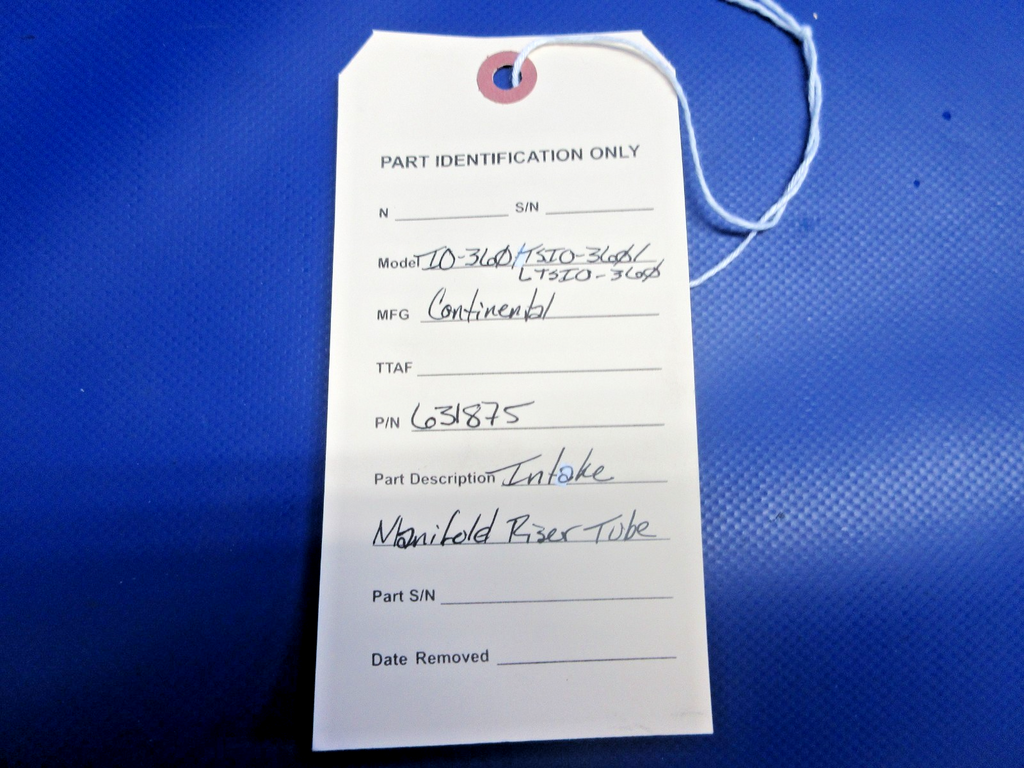 PART IDENTIFICATION ONLY
N S/N
Model IO-360/TSIO-360/
LTSIO-360
MFG Continental
TTAF
P/N 631875
Part Description Intake
Manifold Riser Tube
Part S/N
Date Removed